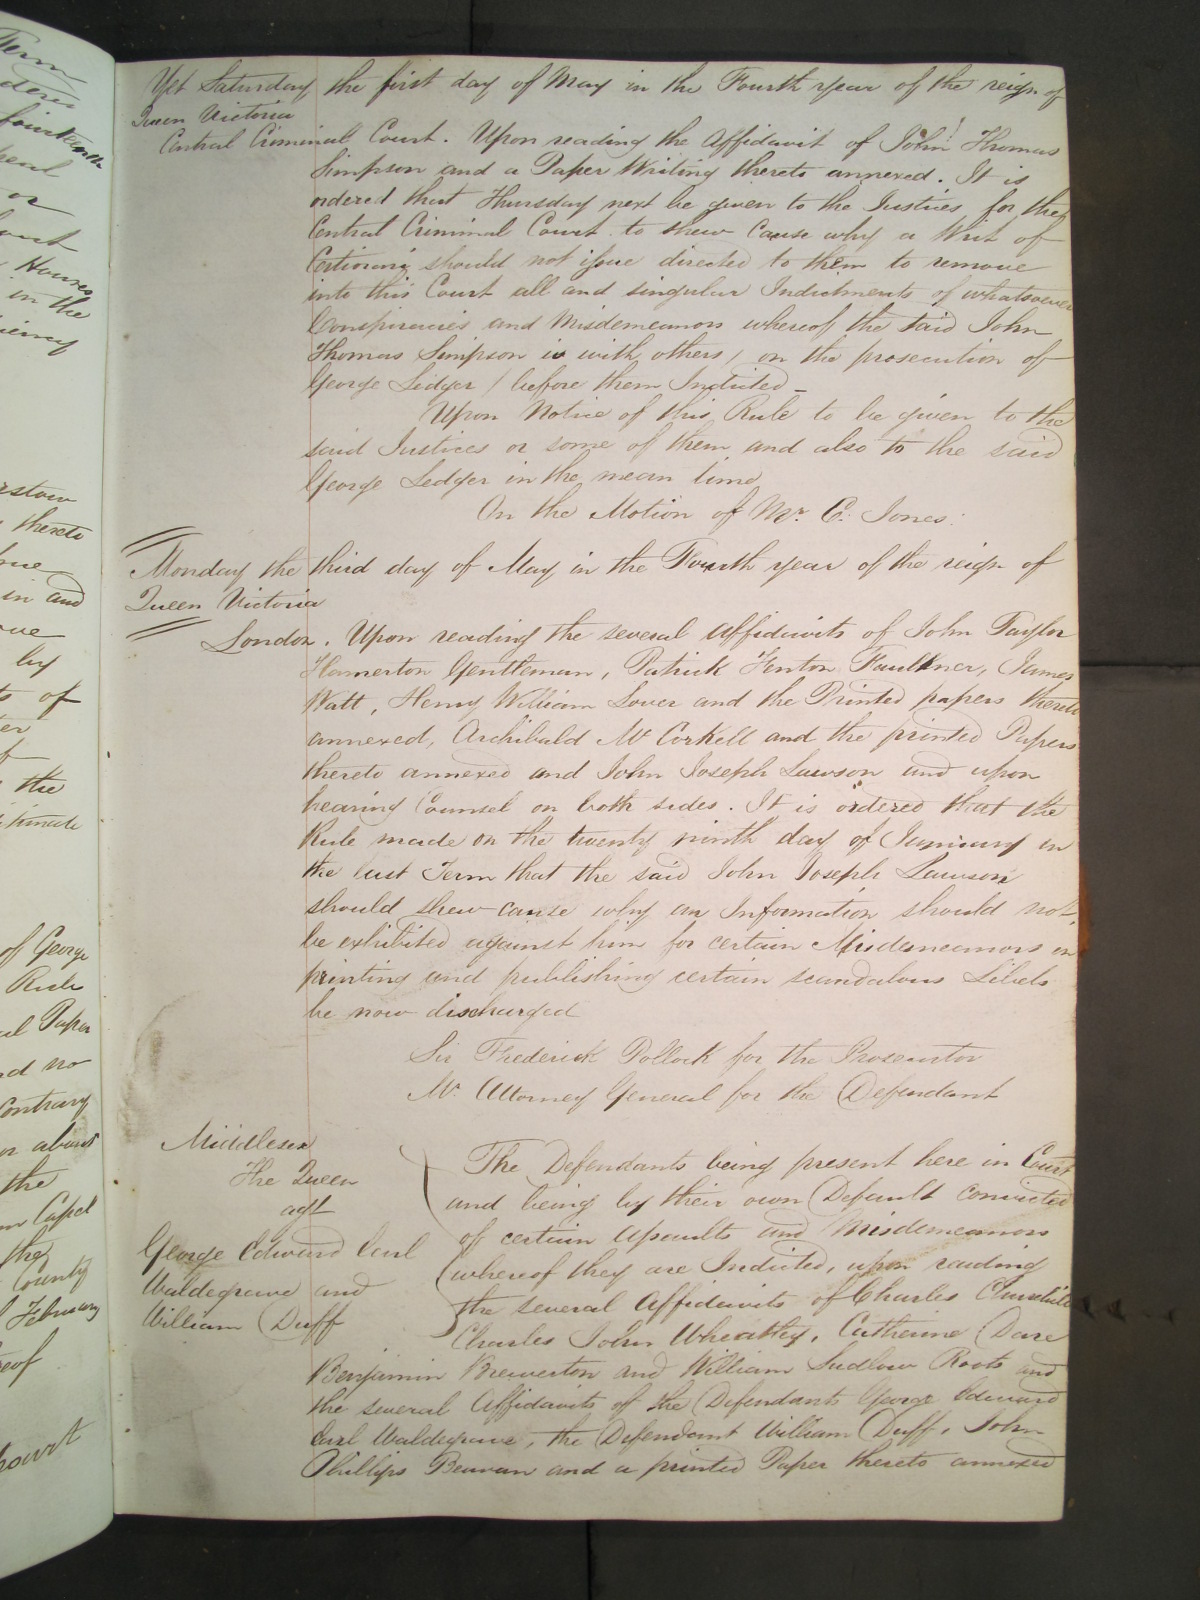 Yet Saturday the first day of May in the Fourth year of the reign of
Queen Victoria
Central Criminal Court. Upon reading the Affidavit of John Thomas
Simpson and a Paper Writing thereto annexed. It is
ordered that Thursday next be given to the Justices for the
Central Criminal Court to shew Cause why a Writ of
Certiorari should not issue directed to them to remove
into this Court all and singular Indictments of whatsoever
Conspiracies and Misdemeanors whereof the said John
Thomas Simpson is with others / on the prosecution of
George Ledger / before them Indicted
Upon Notice of this Rule to be given to the
said Justices or some of them and also to the said
George Ledger in the mean time
On the Motion of Mr. C. Jones.
Monday the third day of May in the Fourth year of the reign of
Queen Victoria
London. Upon reading the several affidavits of John Taylor
Hamerton Gentleman, Patrick Fenton Faulkner, James
Watt, Henry William Lover and the Printed papers thereto
annexed, Archibald Mc Corkell and the printed Papers
thereto annexed and John Joseph Lawson and upon
hearing Counsel on both sides. It is ordered that the
Rule made on the twenty ninth day of January in
the last Term that the said John Joseph Lawson
should shew cause why an Information should not
be exhibited against him for certain Misdemeanors in
printing and publishing certain scandalous Libels
be now discharged
Sir Frederick Pollock for the Prosecutor
Mr. Attorney General for the Defendant
Middlesex
The Queen
agt
George Edward Earl
Waldegrave and
William Duff
The Defendants being present here in Court
and being by their own Default convicted
of certain Assaults and Misdemeanors
whereof they are Indicted, upon reading
the several Affidavits of Charles Churchill
Charles John Wheatley, Catherine Dare
Benjamin Brewerton and William Ludlow Roots and
the several Affidavits of the Defendants George Edward
Earl Waldegrave, the Defendant William Duff, John
Phillips Beavan and a printed Paper thereto annexed